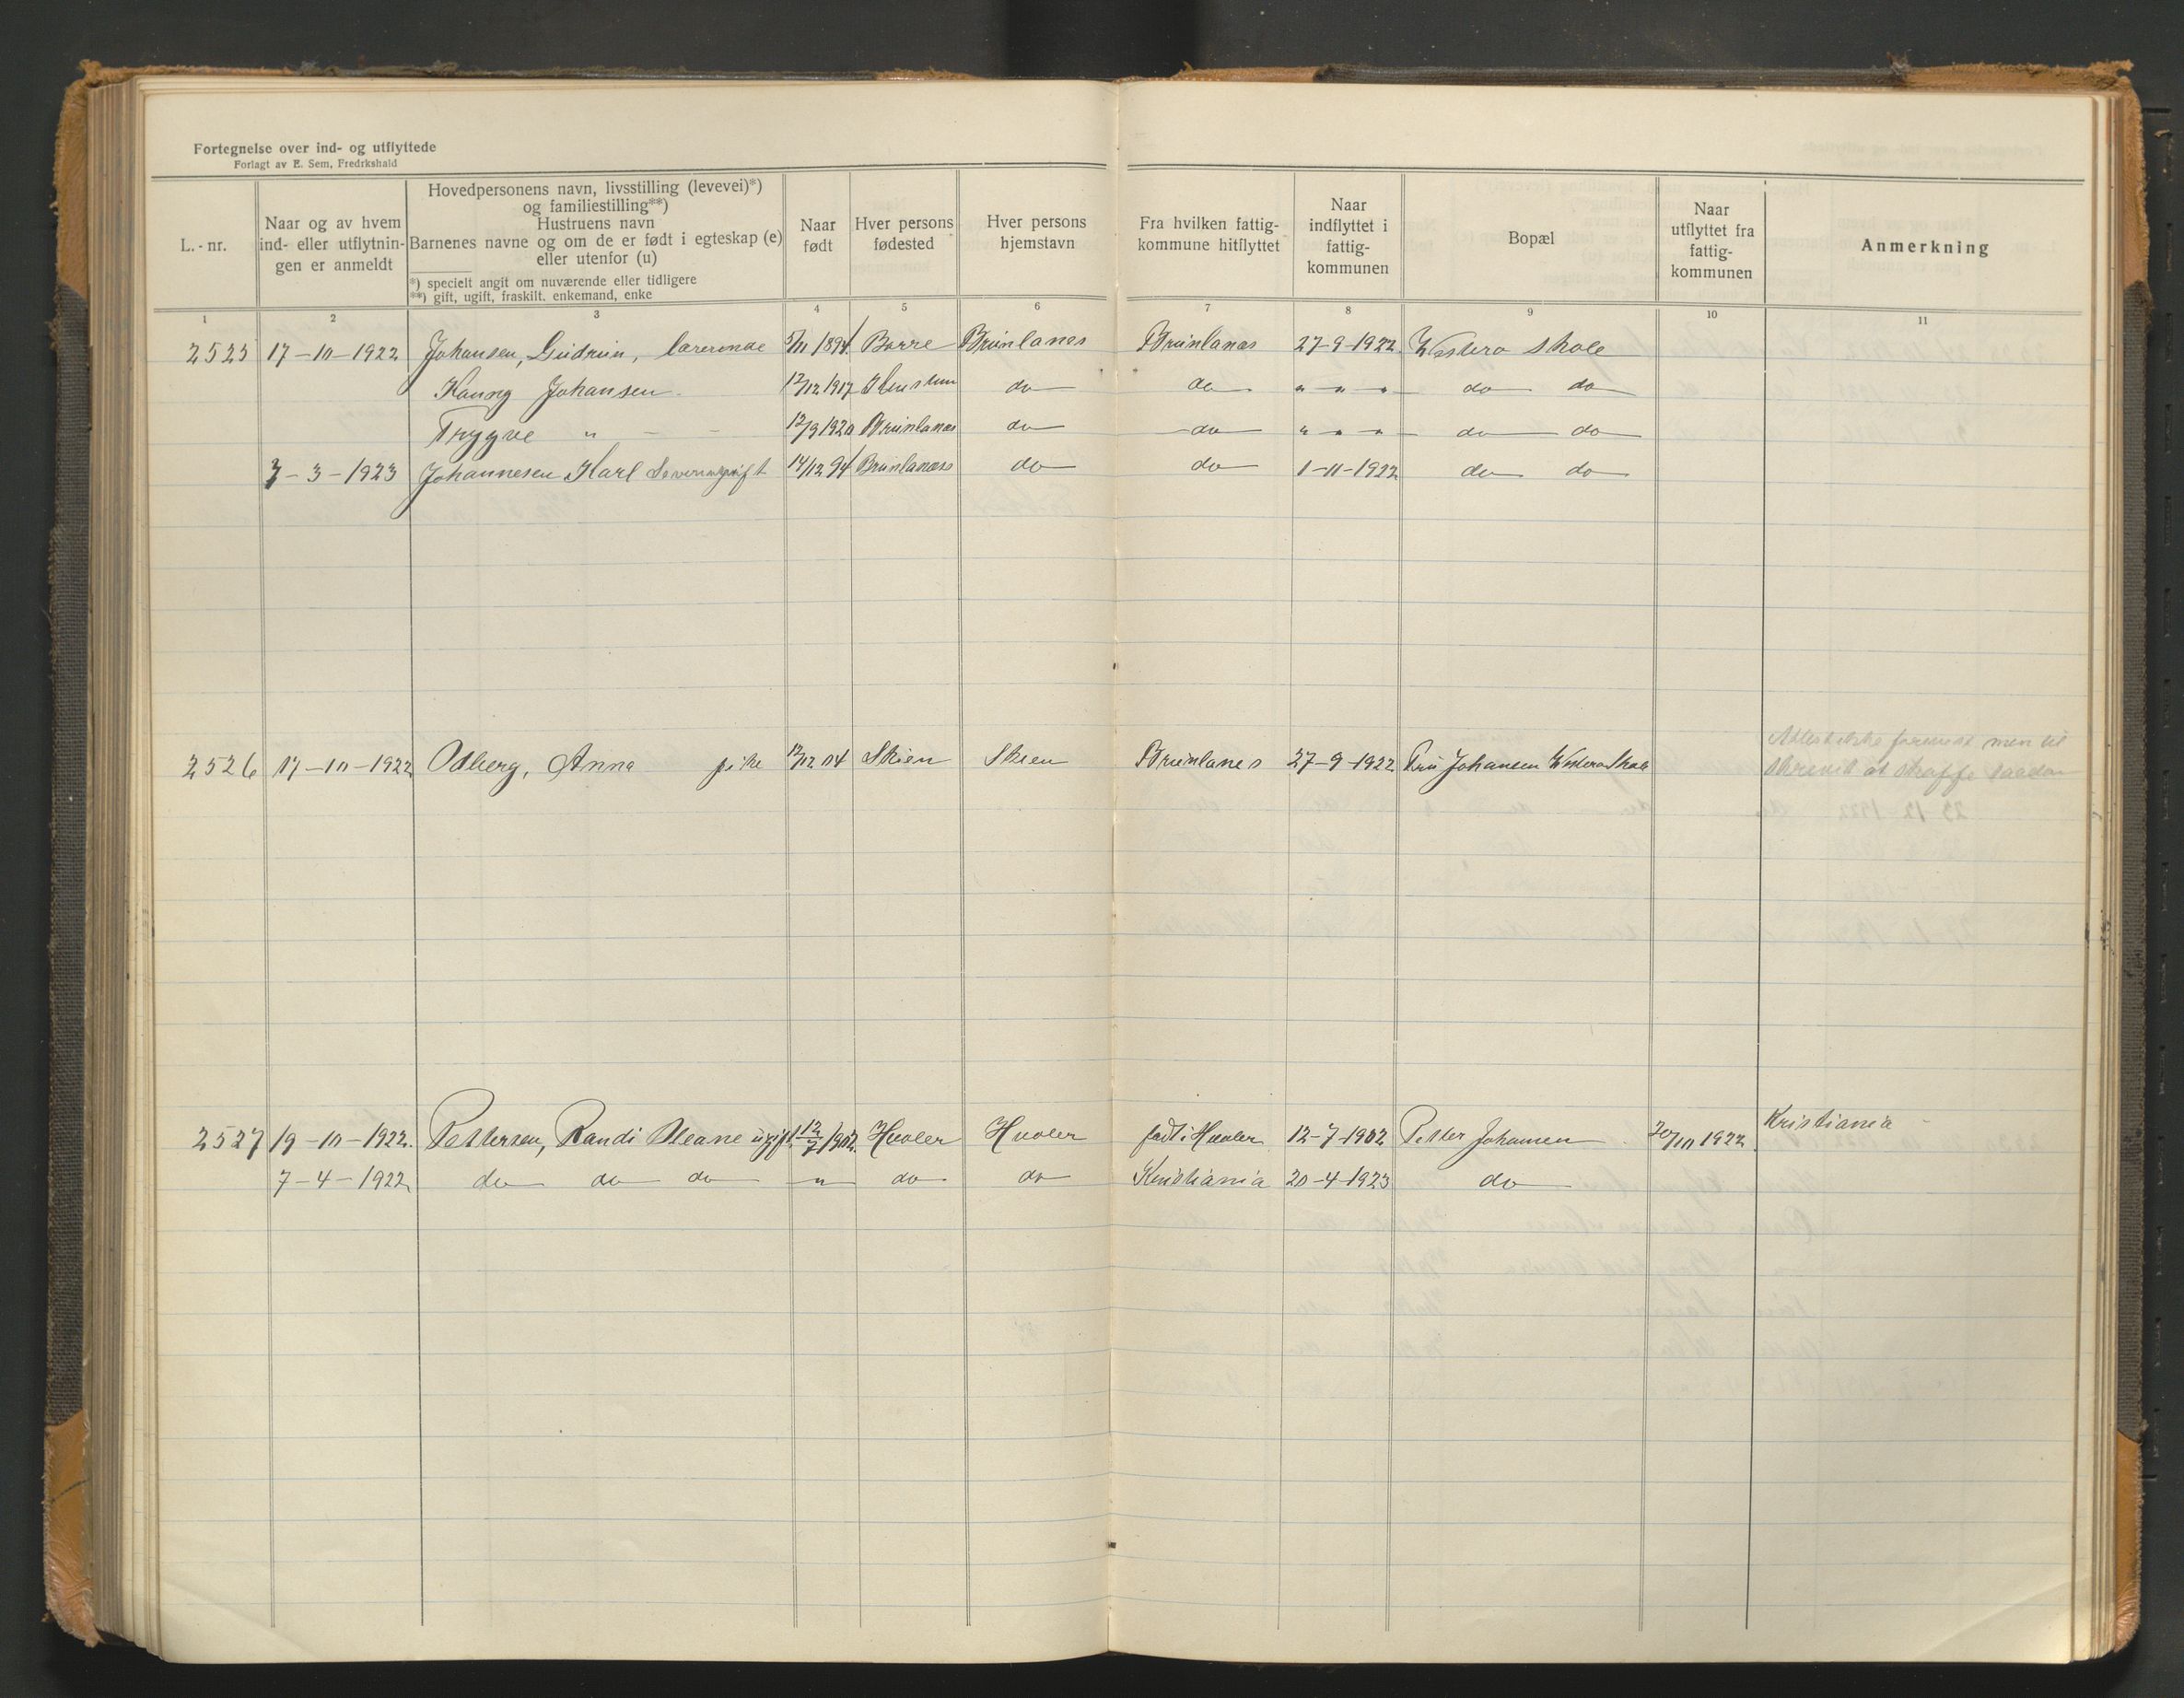 Fortegnelse over ind- og utflyttede
Forlagt av E. Sem, Fredrkshald
L.-nr.
Naar og av hvem ind- eller utflytnin- gen er anmeldt
Hovedpersonens navn, livsstilling (levevei)*) og familiestilling**)
Hustruens navn
Barnenes navne og om de er født i egteskap (e) eller utenfor (u)
*) specielt angit om nuværende eller tidligere
**) gift, ugift, fraskilt. enkemand, enke
Naar født
Hver persons fødested
Hver persons hjemstavn
Fra hvilken fattig- kommune hitflyttet
Naar indflyttet i fattig- kommunen
Bopæl
Naar utflyttet fra fattig- kommunen
Anmerkning
1 2 3 4 5 6 7 8 9 10 11
2525 17-10-1922 Johansen, Gudrun, lærerinde 5/11 1894 Borre Brunlanes Brunlanes 27-9-1922 Vestero skole
Johansen 12/12 1917 do do " " " do do
Trygve " - - 12/9 1920 Brunlanes do do " " " do do
3-3-1923 Johannesen Karl gift 14/12 94 Brunlanes do do 1-11-1922 do do
2526 17-10-1922 Odberg, Anna pike 12/12 04 Skien Skien Brunlanes 27-9-1922 Fru Johansen Vestero Skole
men at skaffe saadan
2527 19-10-1922. Pettersen, Randi Oleane ugift 12/7 1902. Hvaler Hvaler født i Hvaler 12-7-1902 Petter Johansen 20/10 1922. Kristiania
7-4-1922 do do do " do do Kristiania 20-4-1923 do